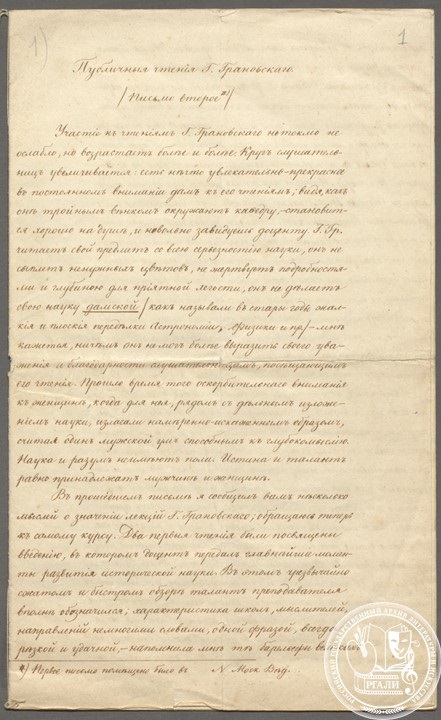 1)
1
Публичныя чтенія Г. Грановскаго.
/Письмо второе*)/
Участіе къ чтеніямъ Г. Грановскаго не токмо не
ослабло, но возрастаетъ болѣе и болѣе. Кругъ слушатель-
ницъ увеличивается: есть нѣчто увлекательно-прекрасное
въ постоянномъ вниманіи дамъ къ его чтеніямъ; видя, какъ
онѣ тройнымъ вѣнкомъ окружаютъ каѳедру, становит-
ся хорошо на душѣ, и невольно завидуешь доценту. Г. Гр.
читаетъ свой предметъ со всею серьезностію науки, онъ не
сыплетъ ненужныхъ цвѣтовъ, не жертвуетъ подробностя-
ми и глубиною для пріятной легкости, онъ не дѣлаетъ
свою науку дамской /какъ называли въ стары годы жал-
кія и плоскія передѣлки Астрономіи, Физики и пр/ - мнѣ
кажется, ничѣмъ онъ не могъ болѣе выразить своего ува-
женія и благодарности слушательницамъ, посѣщающимъ
его чтенія. Прошло время того оскорбительнаго вниманія
къ женщинѣ, когда для нея, рядомъ съ дѣльнымъ изложе-
ніемъ науки, излагали намѣренно-искаженнымъ образомъ,
считая одинъ мужской умъ способнымъ къ глубокомыслію.
Наука и разумъ не имѣютъ пола. Истина и талантъ
равно принадлежатъ мужчинѣ и женщинѣ.
Въ прошедшемъ письмѣ я сообщилъ вамъ нѣсколько
мыслей о значеніи лекцій Г. Грановскаго; обращаюсь теперь
къ самому курсу. Два первыя чтенія были посвящены
введенію, въ которомъ доцентъ передалъ главнѣйшіе момен-
ты развитія исторической науки. Въ этомъ чрезвычайно
сжатомъ и быстромъ обзорѣ талантъ преподавателя
вполнѣ обозначился; характеристика школъ, мыслителей,
направленій немногими словами, одной фразой, всегда
рѣзкой и удачной, - напомнила мнѣ тѣ барельефы
*) Первое письмо помѣщено было въ N Моск. Вѣд.
РОССИЙСКИЙ ГОСУДАРСТВЕННЫЙ АРХИВ ЛИТЕРАТУРЫ И ИСКУССТВА
РГАЛИ